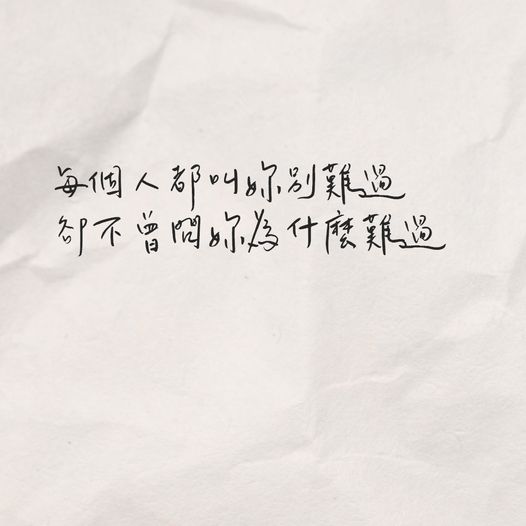 每個人都叫妳別難過
卻不曾問妳為什麼難過